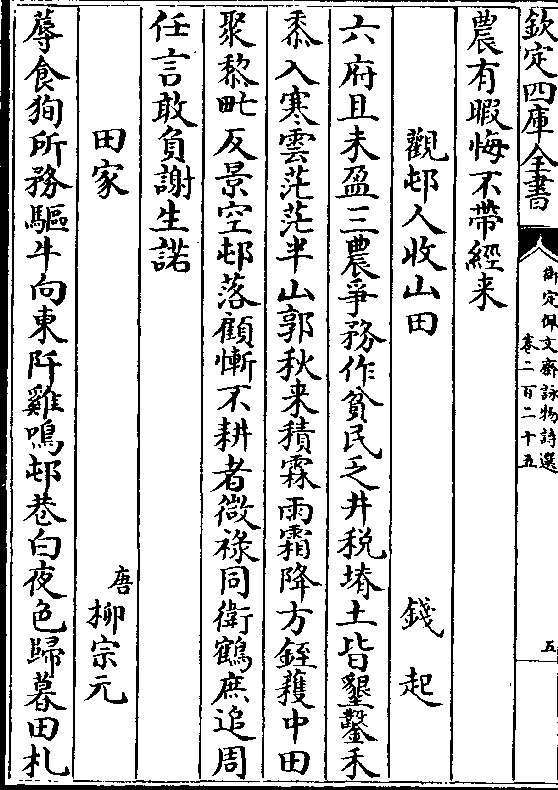 欽定四庫全書
御定佩文齋詠物詩選
卷二百二十五
五
農有暇悔不帶經来
觀邨人收山田 錢起
六府且未盈三農爭務作貧民乏井税塉土皆墾鑿禾
黍入寒雲茫茫半山郭秋来積霖雨霜降方銍穫中田
聚黎甿反景空邨落顧慚不耕者微祿同衛鶴庶追周
任言敢負謝生諾
田家 唐柳宗元
蓐食狥所務驅牛向東阡雞鳴邨巷白夜色歸暮田札